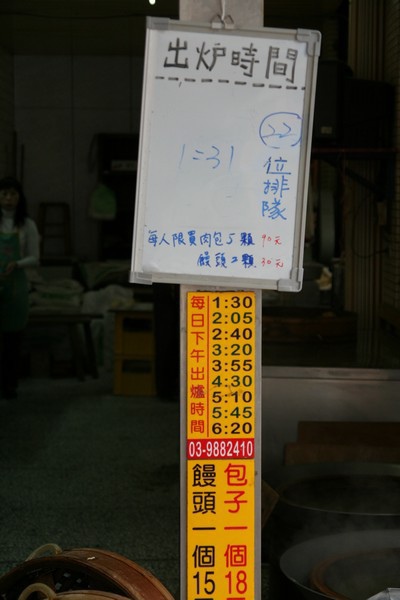 出炉時間
1:31
22
位排隊
每人限買肉包5顆 90元
饅頭2顆 30元
每日下午出爐時間
1:30
2:05
2:40
3:20
3:55
4:30
5:10
5:45
6:20
03-9882410
包子一個18
饅頭一個15